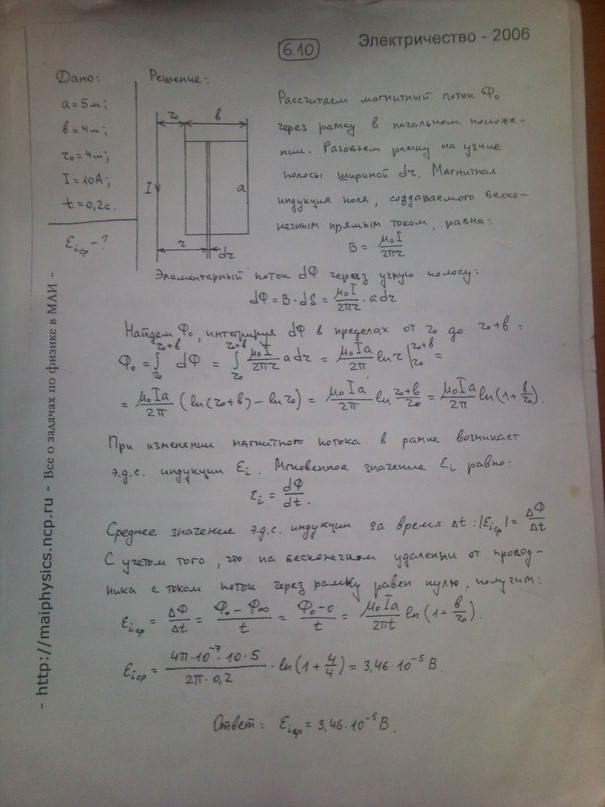 6.10
Электричество - 2006
Дано:
a = 5 м;
b = 4 м;
r₀ = 4 м;
I = 10 А;
t = 0,2 с.
Ɛi ср - ?
Решение:
r₀ b
I a
r dr
Рассчитаем магнитный поток Ф₀
через рамку в начальном положе-
нии. Разобьем рамку на узкие
полосы шириной dr. Магнитная
индукция поля, создаваемого беско-
нечным прямым током, равна:
B = μ₀I / 2πr
Элементарный поток dФ через узкую полосу:
dФ = B · dS = μ₀I / 2πr · a dr
Найдем Ф₀, интегрируя dФ в пределах от r₀ до r₀+b:
Ф₀ = ∫_{r₀}^{r₀+b} dФ = ∫_{r₀}^{r₀+b} μ₀I / 2πr a dr = μ₀Ia / 2π ln r |_{r₀}^{r₀+b} =
= μ₀Ia / 2π (ln(r₀+b) − ln r₀) = μ₀Ia / 2π ln (r₀+b)/r₀ = μ₀Ia / 2π ln(1 + b/r₀).
При изменении магнитного потока в рамке возникает
э.д.с. индукции Ɛi. Мгновенное значение Ɛi равно:
Ɛi = dФ / dt.
Среднее значение э.д.с. индукции за время Δt: |Ɛi ср| = ΔФ / Δt
С учетом того, что на бесконечном удалении от провод-
ника с током поток через рамку равен нулю, получим:
Ɛi ср = ΔФ / Δt = (Ф₀ − Ф∞) / t = (Ф₀ − 0) / t = μ₀Ia / 2πt ln(1 + b/r₀).
Ɛi ср = (4π·10⁻⁷·10·5) / (2π·0,2) · ln(1 + 4/4) = 3,46·10⁻⁵ В.
Ответ: Ɛi ср = 3,46·10⁻⁵ В.
- http://maiphysics.ncp.ru - Все о задачах по физике в МАИ -